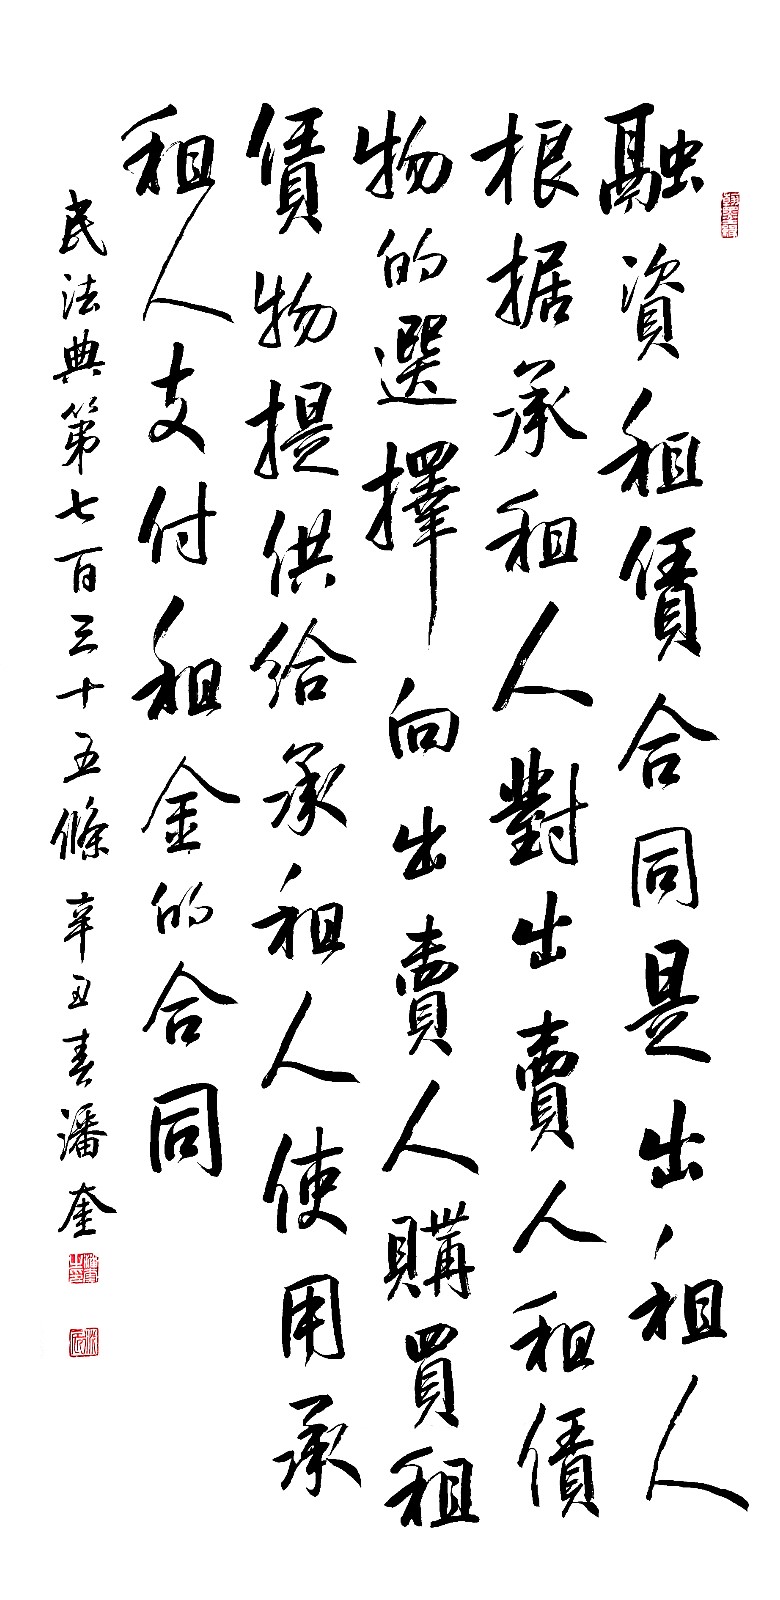 融資租賃合同是出租人
根据承租人對出賣人租賃
物的選擇向出賣人購買租
賃物提供給承租人使用承
租人支付租金的合同
民法典第七百三十五條辛丑春潘奎